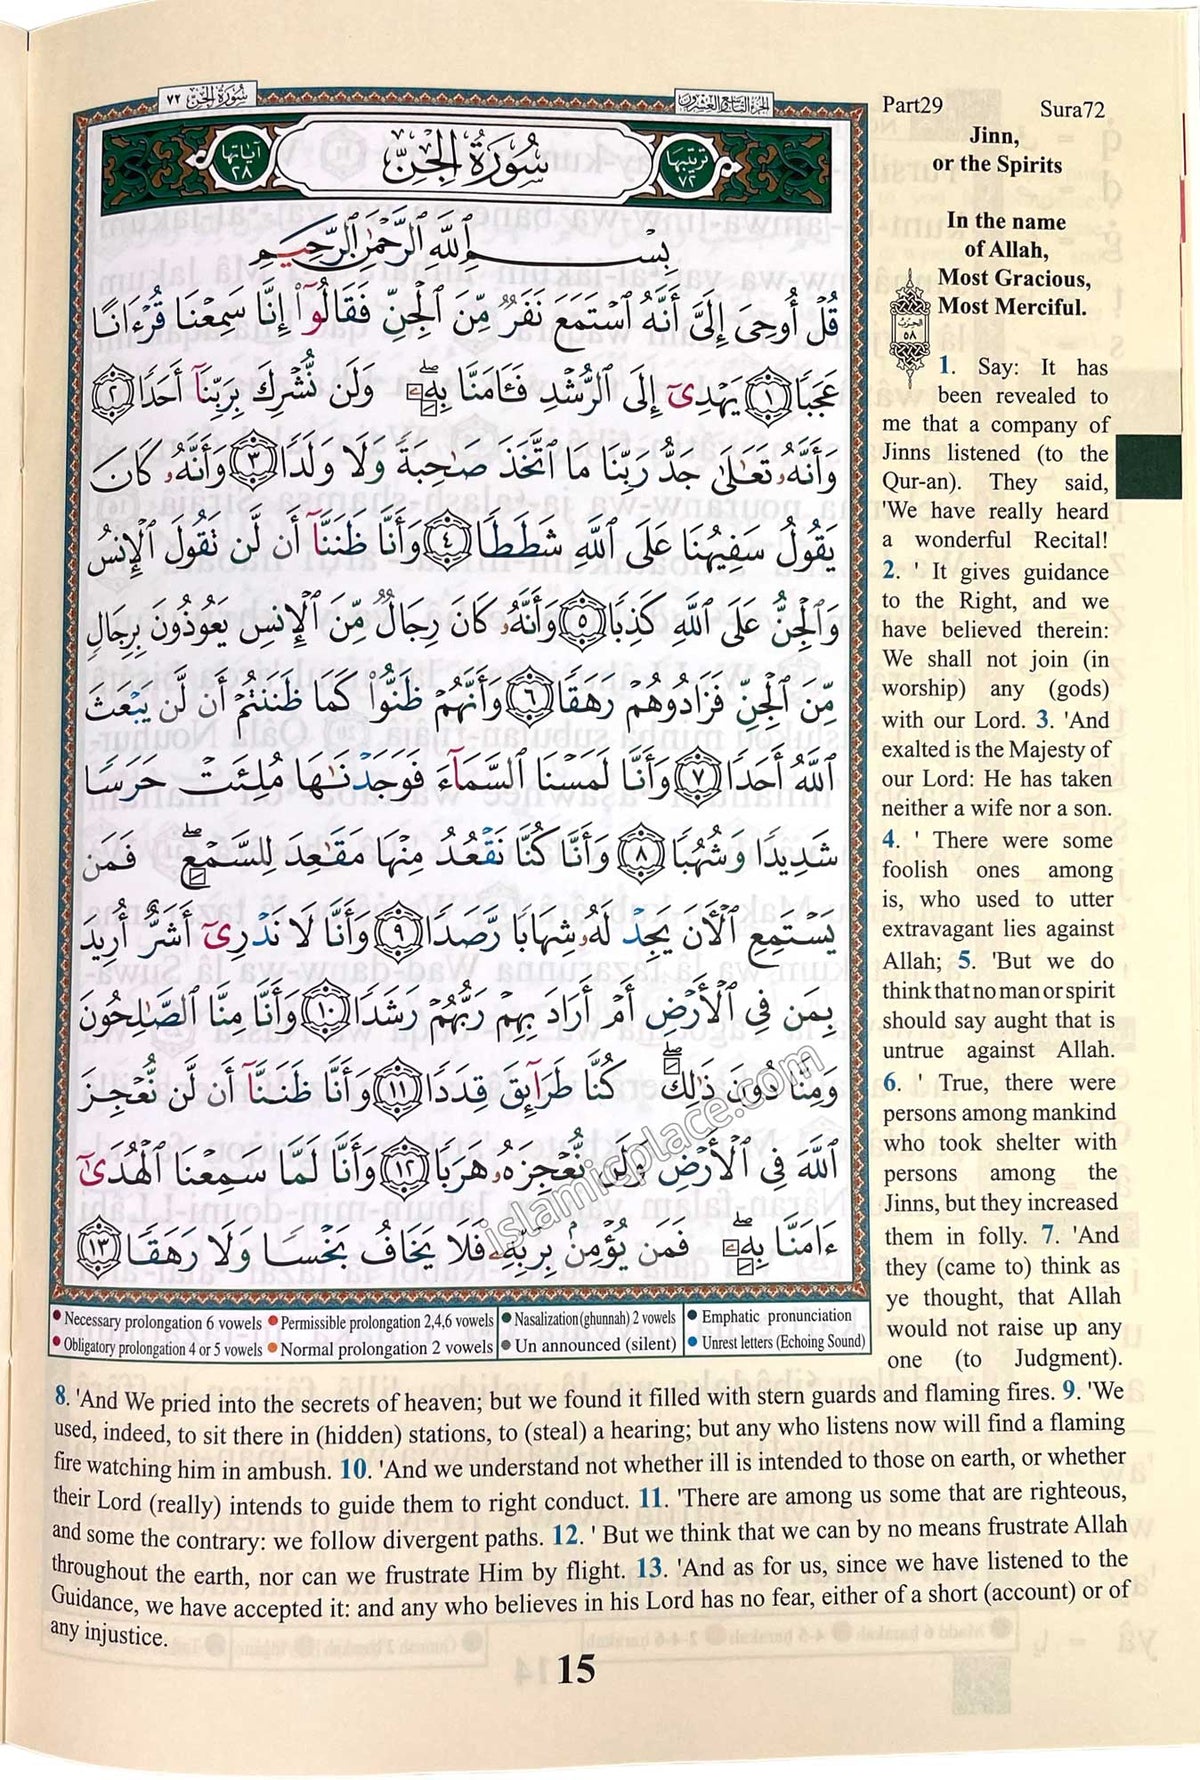 سُورَةُ الجِنِّ ٧٢
الجزء التاسع والعشرون
آياتها ٢٨
سُورَةُ الجِنِّ
ترتيبها ٧٢
بِسْمِ ٱللَّهِ ٱلرَّحْمَٰنِ ٱلرَّحِيمِ
قُلْ أُوحِىَ إِلَىَّ أَنَّهُ ٱسْتَمَعَ نَفَرٌ مِّنَ ٱلْجِنِّ فَقَالُوٓا۟ إِنَّا سَمِعْنَا قُرْءَانًا
عَجَبًا ١ يَهْدِىٓ إِلَى ٱلرُّشْدِ فَـَٔامَنَّا بِهِۦ ۖ وَلَن نُّشْرِكَ بِرَبِّنَآ أَحَدًا ٢
وَأَنَّهُۥ تَعَٰلَىٰ جَدُّ رَبِّنَا مَا ٱتَّخَذَ صَٰحِبَةً وَلَا وَلَدًا ٣ وَأَنَّهُۥ كَانَ
يَقُولُ سَفِيهُنَا عَلَى ٱللَّهِ شَطَطًا ٤ وَأَنَّا ظَنَنَّآ أَن لَّن تَقُولَ ٱلْإِنسُ
وَٱلْجِنُّ عَلَى ٱللَّهِ كَذِبًا ٥ وَأَنَّهُۥ كَانَ رِجَالٌ مِّنَ ٱلْإِنسِ يَعُوذُونَ بِرِجَالٍ
مِّنَ ٱلْجِنِّ فَزَادُوهُمْ رَهَقًا ٦ وَأَنَّهُمْ ظَنُّوا۟ كَمَا ظَنَنتُمْ أَن لَّن يَبْعَثَ
ٱللَّهُ أَحَدًا ٧ وَأَنَّا لَمَسْنَا ٱلسَّمَآءَ فَوَجَدْنَٰهَا مُلِئَتْ حَرَسًا
شَدِيدًا وَشُهُبًا ٨ وَأَنَّا كُنَّا نَقْعُدُ مِنْهَا مَقَٰعِدَ لِلسَّمْعِ ۖ فَمَن
يَسْتَمِعِ ٱلْأَنَ يَجِدْ لَهُۥ شِهَابًا رَّصَدًا ٩ وَأَنَّا لَا نَدْرِىٓ أَشَرٌّ أُرِيدَ
بِمَن فِى ٱلْأَرْضِ أَمْ أَرَادَ بِهِمْ رَبُّهُمْ رَشَدًا ١٠ وَأَنَّا مِنَّا ٱلصَّٰلِحُونَ
وَمِنَّا دُونَ ذَٰلِكَ ۖ كُنَّا طَرَآئِقَ قِدَدًا ١١ وَأَنَّا ظَنَنَّآ أَن لَّن نُّعْجِزَ
ٱللَّهَ فِى ٱلْأَرْضِ وَلَن نُّعْجِزَهُۥ هَرَبًا ١٢ وَأَنَّا لَمَّا سَمِعْنَا ٱلْهُدَىٰٓ
ءَامَنَّا بِهِۦ ۖ فَمَن يُؤْمِنۢ بِرَبِّهِۦ فَلَا يَخَافُ بَخْسًا وَلَا رَهَقًا ١٣
islamicplace.com
● Necessary prolongation 6 vowels ● Permissible prolongation 2,4,6 vowels ● Nasalization (ghunnah) 2 vowels ● Emphatic pronunciation
● Obligatory prolongation 4 or 5 vowels ● Normal prolongation 2 vowels ● Un announced (silent) ● Unrest letters (Echoing Sound)
Part29 Sura72
Jinn,
or the Spirits
In the name
of Allah,
Most Gracious,
Most Merciful.
الحزب
٥٨
1. Say: It has
been revealed to
me that a company of
Jinns listened (to the
Qur-an). They said,
'We have really heard
a wonderful Recital!
2. ' It gives guidance
to the Right, and we
have believed therein:
We shall not join (in
worship) any (gods)
with our Lord. 3. 'And
exalted is the Majesty of
our Lord: He has taken
neither a wife nor a son.
4. ' There were some
foolish ones among
is, who used to utter
extravagant lies against
Allah; 5. 'But we do
think that no man or spirit
should say aught that is
untrue against Allah.
6. ' True, there were
persons among mankind
who took shelter with
persons among the
Jinns, but they increased
them in folly. 7. 'And
they (came to) think as
ye thought, that Allah
would not raise up any
one (to Judgment).
8. 'And We pried into the secrets of heaven; but we found it filled with stern guards and flaming fires. 9. 'We
used, indeed, to sit there in (hidden) stations, to (steal) a hearing; but any who listens now will find a flaming
fire watching him in ambush. 10. 'And we understand not whether ill is intended to those on earth, or whether
their Lord (really) intends to guide them to right conduct. 11. 'There are among us some that are righteous,
and some the contrary: we follow divergent paths. 12. ' But we think that we can by no means frustrate Allah
throughout the earth, nor can we frustrate Him by flight. 13. 'And as for us, since we have listened to the
Guidance, we have accepted it: and any who believes in his Lord has no fear, either of a short (account) or of
any injustice.
15